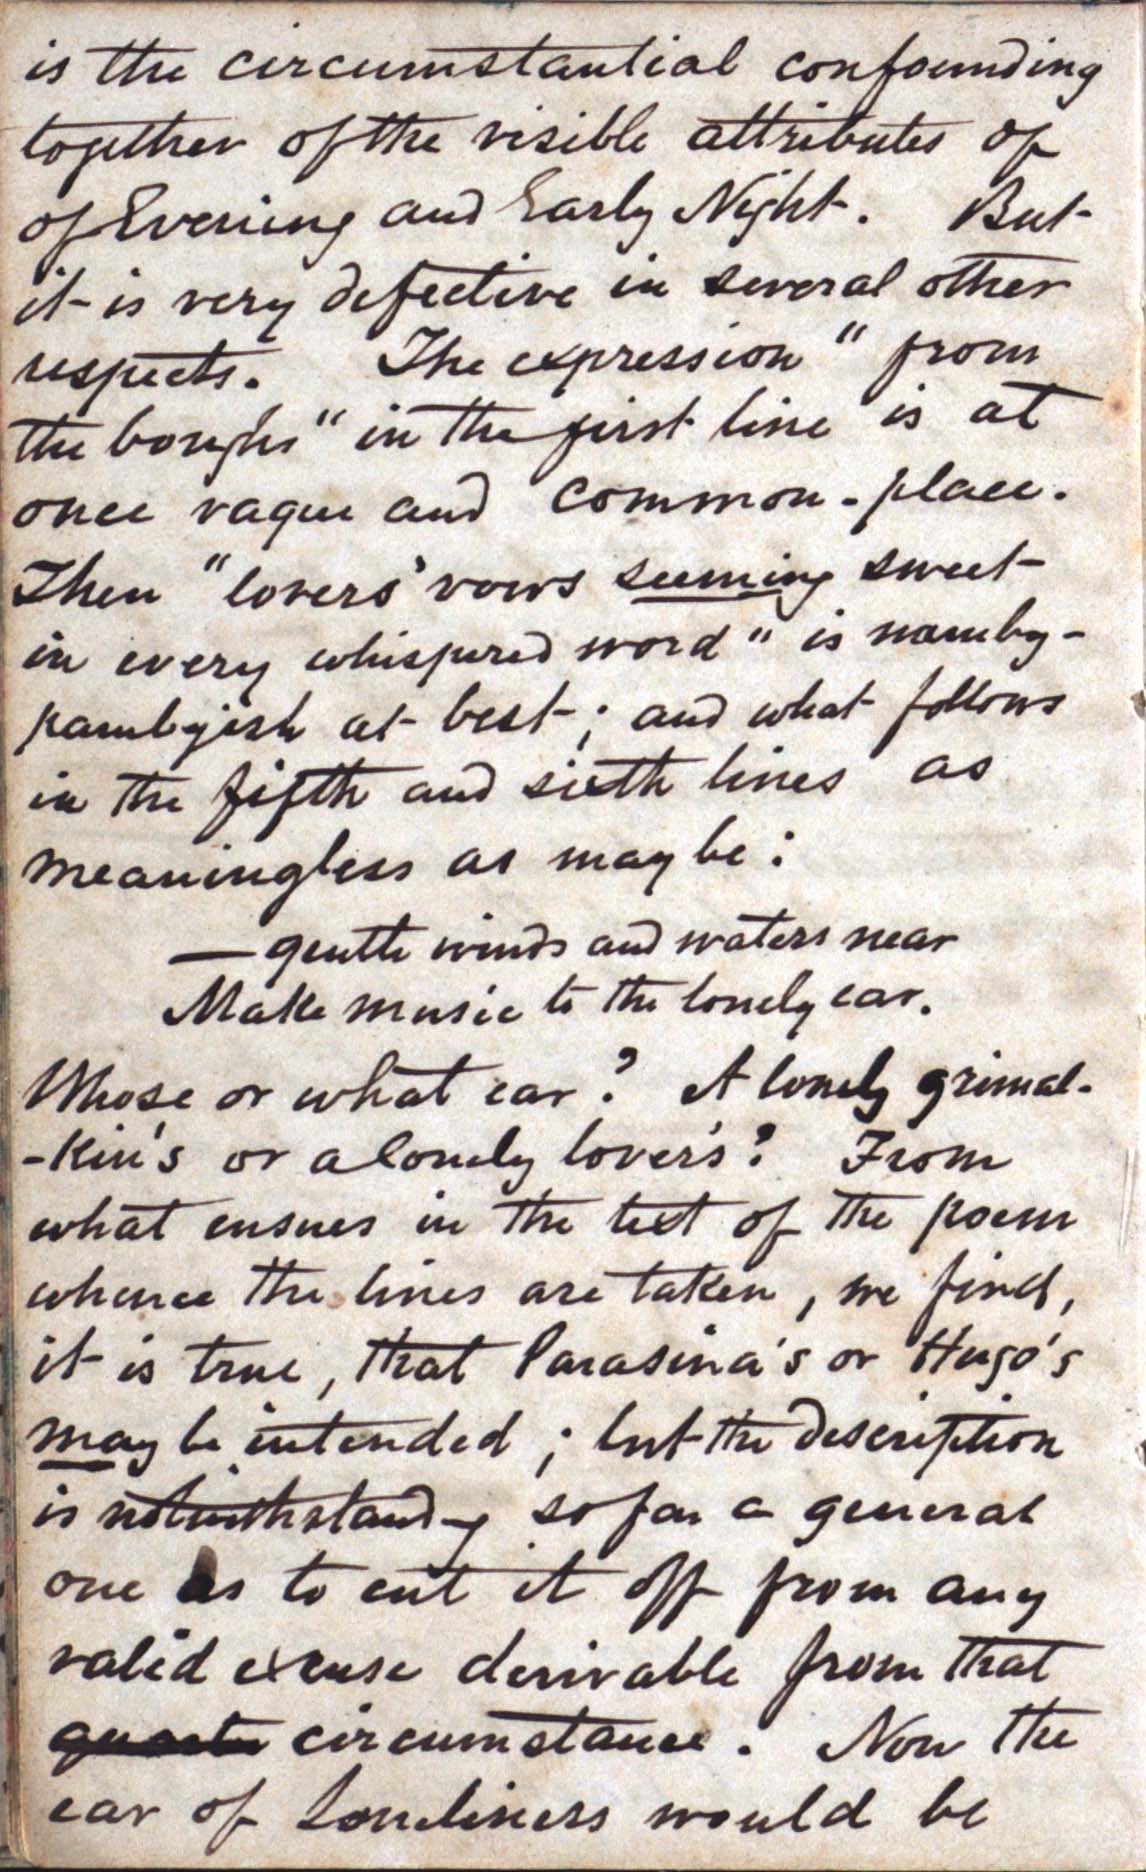 is the circumstantial confounding
together of the visible attributes of
of Evening and Early Night. But
it is very defective in several other
respects. The expression "from
the boughs" in the first line is at
once vague and common-place.
Then "lovers' vows seeming sweet
in every whispered word" is namby-
pambyish at best; and what follows
in the fifth and sixth lines as
meaningless as may be:
— gentle winds and waters near
Make music to the lonely ear.
Whose or what ear? A lonely grimal-
-kin's or a lonely lover's? From
what ensues in the text of the poem
whence the lines are taken, we find,
it is true, that Parasina's or Hugo's
may be intended; but the description
is notwithstanding so far a general
one as to cut it off from any
valid excuse derivable from that
circumstance. Now the
ear of Loneliness would be